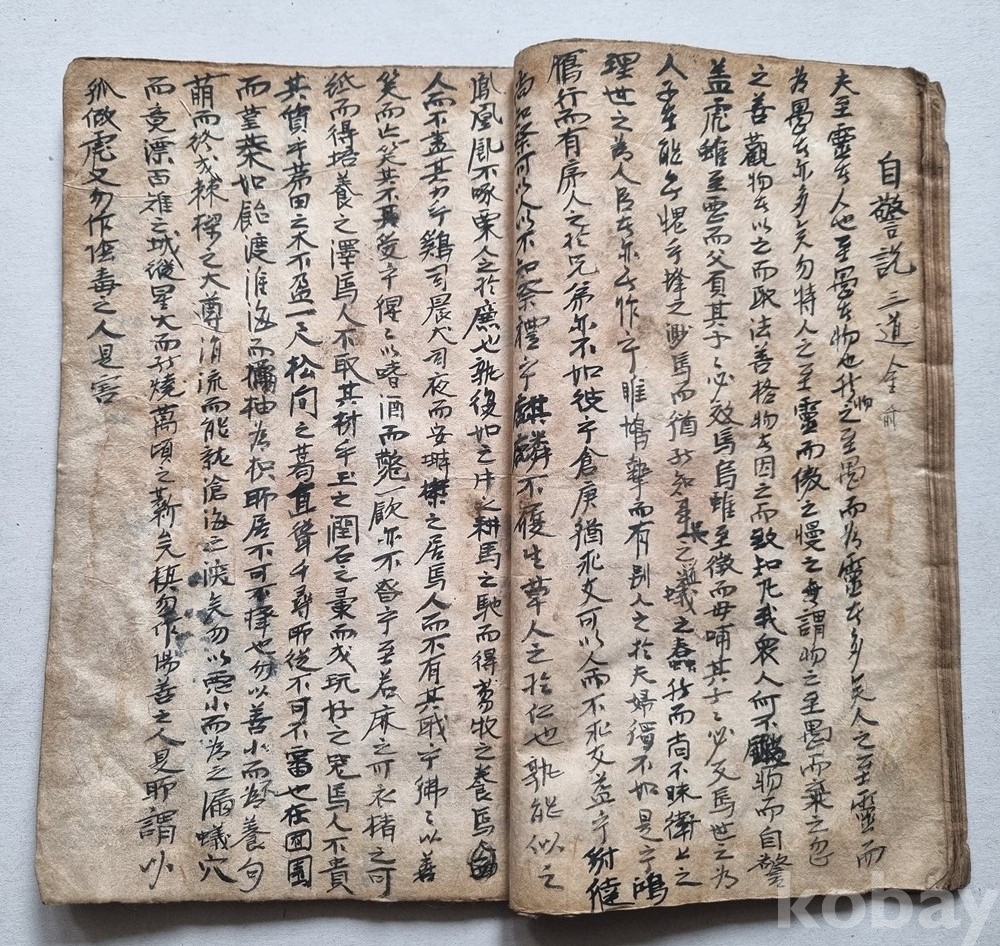 自警說 三道全前
夫至靈者人也至愚者物也然物之至愚而爲靈者多矣人之至靈而
爲愚者亦多矣勿恃人之至靈而傲之慢之毋謂物之至愚而棄之忽
之善觀物者以之而取法善格物者因之而致知凡我衆人何不鑑物而自警
盖虎雖至靈而父負其子子必效焉烏雖至微而母哺其子子必反焉世之爲
人子者能無愧乎蜂之渺焉而猶然知事長之
蟻之蠢然而尚不昧衛上之
理世之爲人臣者亦無怍乎雎鳩摯而有別人之於夫婦獨不如是乎鴻
鴈行而有序人之於兄弟亦不如彼乎倉庚猶求友可以人而不求友益乎豺㺠
尚知祭可以人以不知祭禮乎麒麟不履生草人之於仁也孰能似之
鳳凰飢不啄粟人之於廉也孰復如之牛之耕馬之馳而得蒭牧之養焉
人而不盡其力乎鷄司晨犬司夜而安
之居焉人而不有其職乎狒狒以善
笑而亡笑其不
受乎猩猩以嗜酒而斃一飮亦不
乎至若麻之可衣楮之可
紙而得培養之澤焉人不取其材乎玉之潤石之
而成玩好之
焉人不貴
其貨乎茅田之木不盈一尺松間之葛直聳千尋所從不可不審也在
而菫荼如飴渡淮海而
柚爲枳所居不可不擇也勿以善小而不爲養句
萌而終成棟樑之大
涓流而能就滄海之波矣勿以惡小而爲之漏蟻穴
而竟漂百雉之城縱星火而然燒萬頃之薪矣
勿作傷善之人是所謂
狐假虎又勿作
毒之人是害
kobay